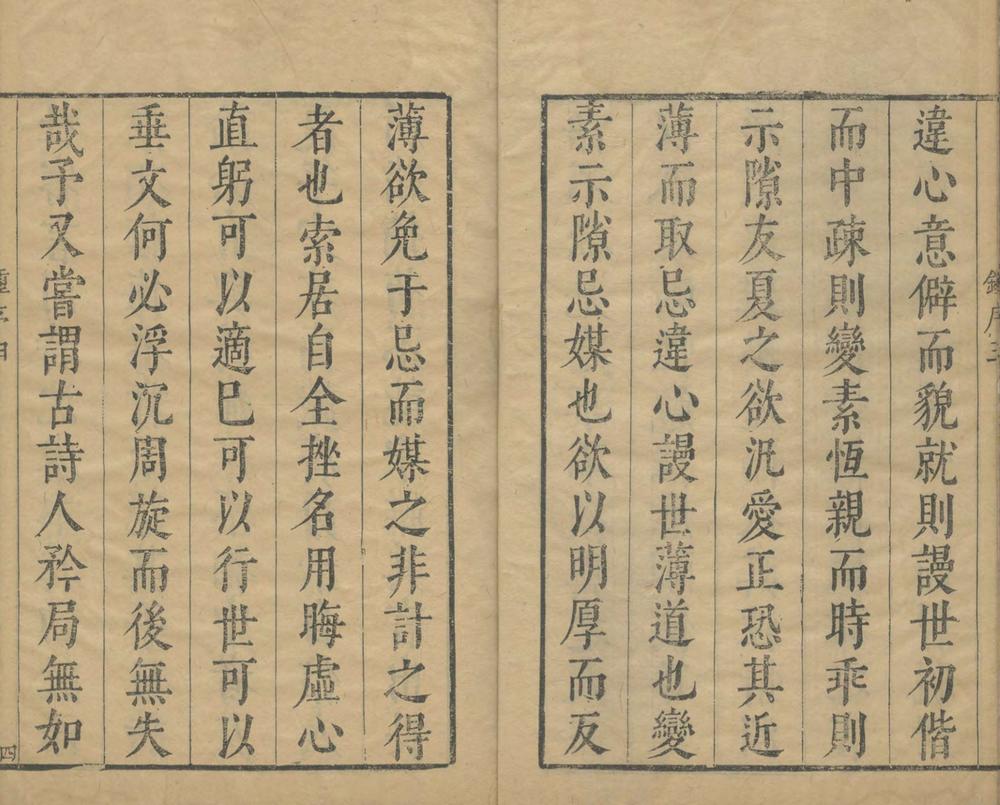 違心意僻而貌就則謾世初偕
而中疎則變素恆親而時乖則
示隙友夏之欲汎愛正恐其近
薄而取忌違心謾世薄道也變
素示隙忌媒也欲以明厚而反
薄欲免于忌而媒之非計之得
者也索居自全挫名用晦虛心
直躬可以適巳可以行世可以
垂文何必浮沉周旋而後無失
哉予又嘗謂古詩人矜局無如
四